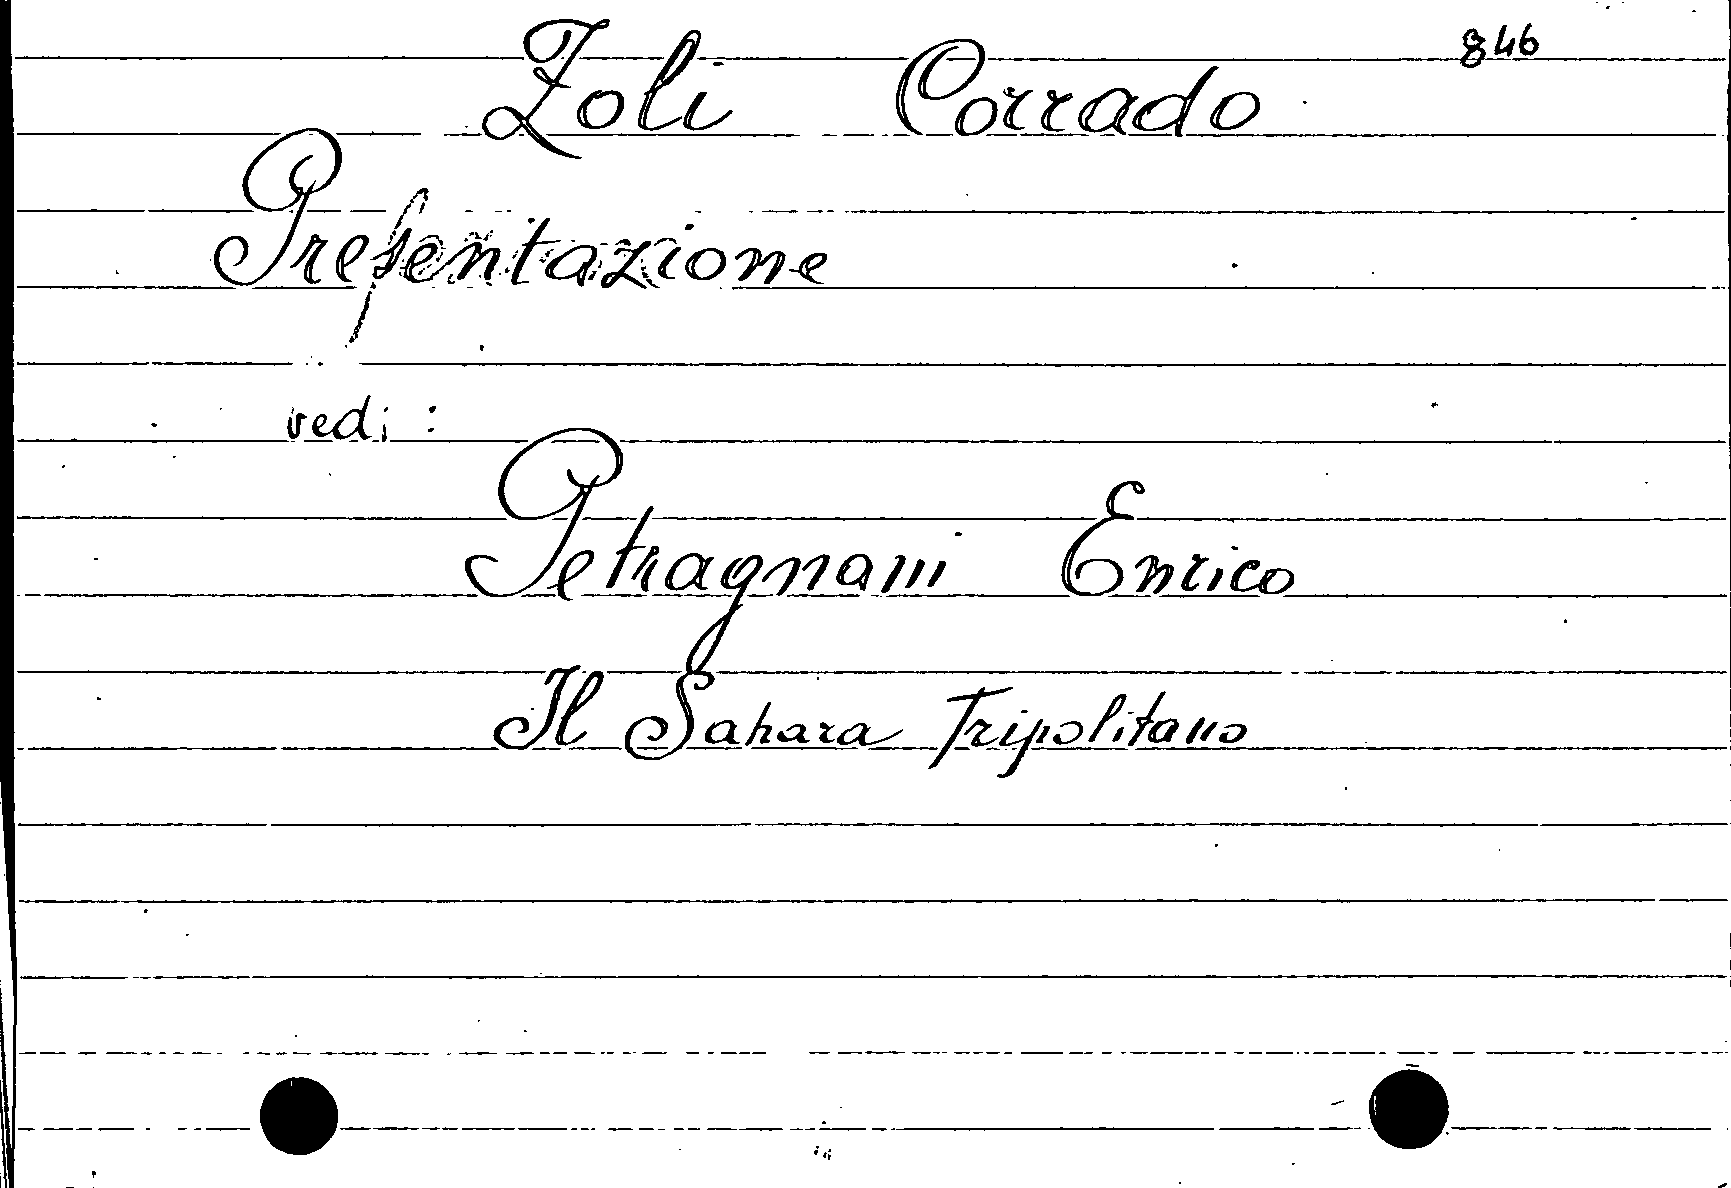 846
Zoli Corrado
Presentazione
vedi :
Petragnani Enrico
Il Sahara Tripolitano